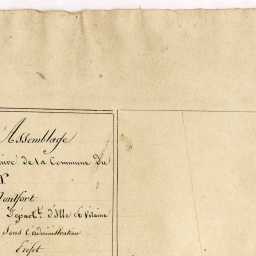 Assemblage
de la Commune du
Montfort
Départ.t d'Ille et Vilaine
Sous l'administration
Préfet